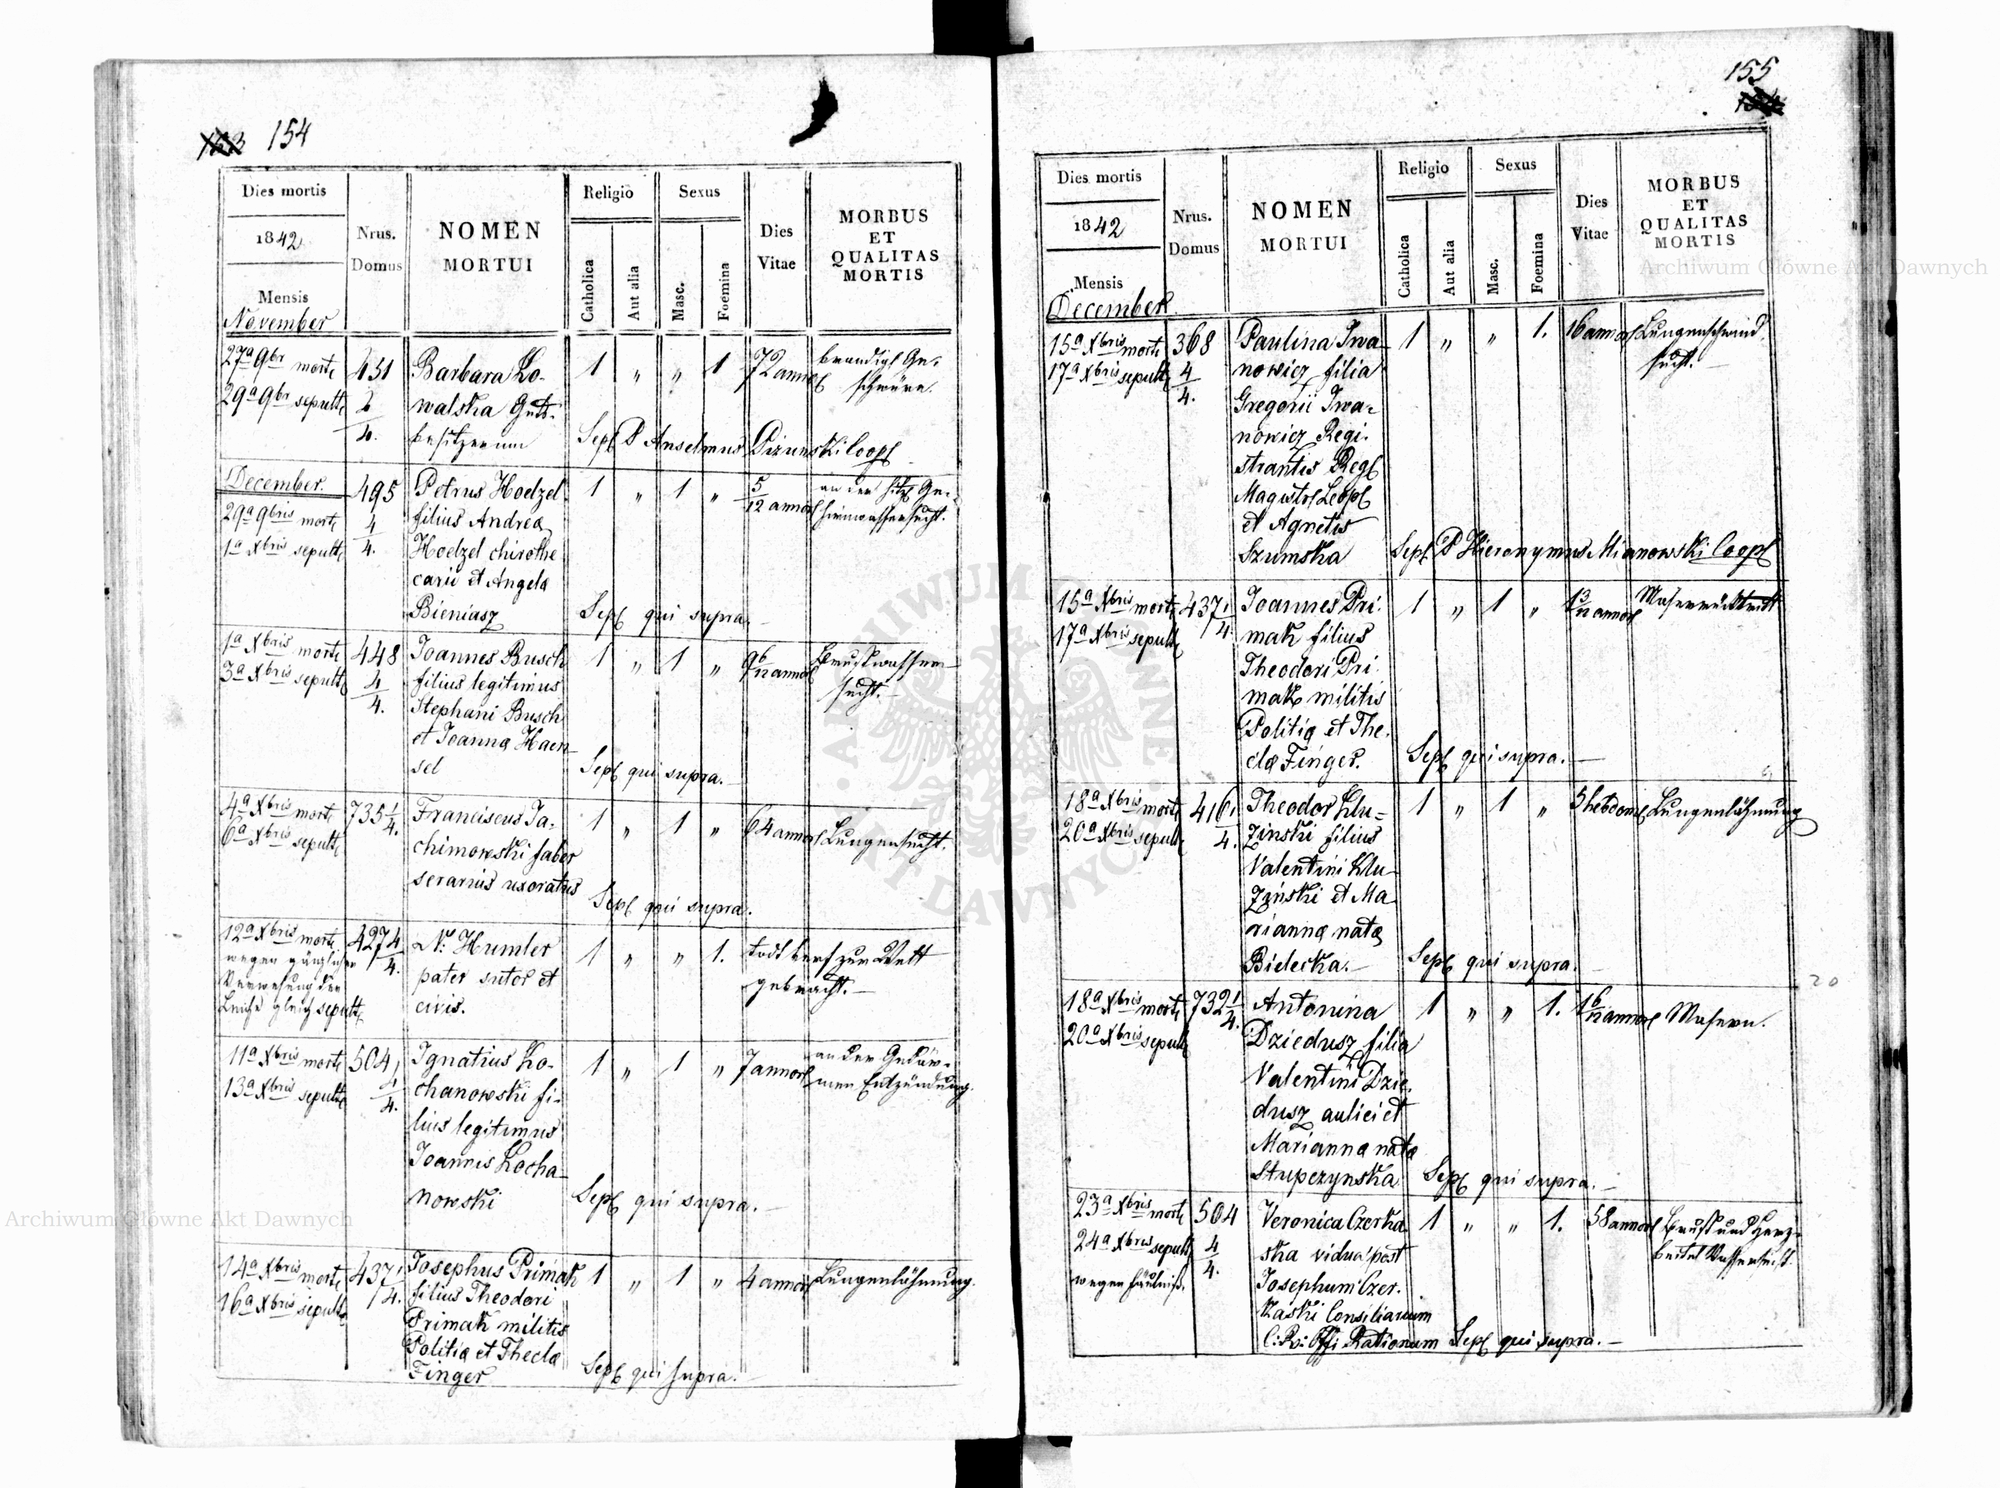 154
Dies mortis
1842
Mensis
November
Nrus.
Domus
NOMEN
MORTUI
Religio
Catholica
Aut alia
Sexus
Masc.
Foemina
Dies
Vitae
MORBUS
ET
QUALITAS
MORTIS
27ª 9br morte
29ª 9br sepult
451
4.
Barbara Ko-
walska Guts-
besitzerinn
1 „ „ 1
72 annor
brandige Ge-
schwüre.
Sep P Anselmus Coop
December.
29ª 9bris morte
1ª Xbris sepult
495
4
4.
Petrus Hoelzel
filius Andrea
Hoelzel chirothe
carii et Angela
Bieniasz
1 „ 1 „
5
12 annor
an der Ge-
hirnwassersucht.
Sep qui supra.
1ª Xbris morte
3ª Xbris sepult
448
4
4.
Joannes Busch
filius legitimus
Stephani Busch
et Joanna Haen-
sel
1 „ 1 „
9 6/12 annor
Brustwasser-
sucht.
Sep qui supra.
4ª Xbris morte
6ª Xbris sepult
735 1/4.
Franciscus Ja-
chimowski faber
serarius uxoratus
1 „ 1 „
64 annor
Lungensucht.
Sep qui supra.
12ª Xbris morte
wegen gänzlicher
Verwesung der
Leiche gleich sepult
427 4/4.
N: Humler
pater sutor et
civis.
1 „ „ 1.
todt zur Welt
gebracht.
11ª Xbris morte
13ª Xbris sepult
504
4/4.
Ignatius Ko-
chanowski fi-
lius legitimus
Joannis Kocha-
nowski
1 „ 1 „
7 annor
an der Gedär-
men Entzündung.
Sep qui supra.
14ª Xbris morte
16ª Xbris sepult
437 1/4.
Josephus Primak
filius Theodori
Primak militis
Politia et Thecla
Finger
1 „ 1 „
4 annor
Lungenlähmung.
Sep qui supra.
155
Dies mortis
1842
Mensis
December
Nrus.
Domus
NOMEN
MORTUI
Religio
Catholica
Aut alia
Sexus
Masc.
Foemina
Dies
Vitae
MORBUS
ET
QUALITAS
MORTIS
15ª Xbris morte
17ª Xbris sepult
368
4
4.
Paulina Iwa-
nowicz filia
Gregorii Iwa-
nowicz Regi-
strantis Reg
Magistr Leop
et Agnetis
Szumska
1 „ „ 1.
16 annor
Lungenschwind
sucht.
Sep P Hieronymus Mianowski Coop
15ª Xbris morte
17ª Xbris sepult
437 1/4.
Joannes Pri-
mak filius
Theodori Pri-
mak militis
Politia et The-
cla Finger.
1 „ 1 „
annor
Masernrücktritt
Sep qui supra.
18ª Xbris morte
20ª Xbris sepult
416 1/4.
Theodor Klu-
zinski filius
Valentini Klu-
zinski et Ma
rianna nata
Bielecka.
1 „ 1 „
3 hebdom
Lungenlähmung
Sep qui supra.
20
18ª Xbris morte
20ª Xbris sepult
732 1/4.
Antonina
Dziedusz filia
Valentini Dzie-
dusz aulici et
Marianna nata
Stupczynska
1 „ „ 1.
1 6/12 annor
Masern.
Sep qui supra.
23ª Xbris morte
24ª Xbris sepult
wegen Fäulniß.
504
4
4.
Veronica Czerka
ska vidua post
Josephum Czer-
kaski Consiliarium
C: R: Offi Rationum Sep qui supra.
1 „ „ 1.
58 annor
Brust und Herz-
beutel Wassersucht.
ARCHIWUM GŁÓWNE AKT DAWNYCH
Archiwum Główne Akt Dawnych
Archiwum Główne Akt Dawnych